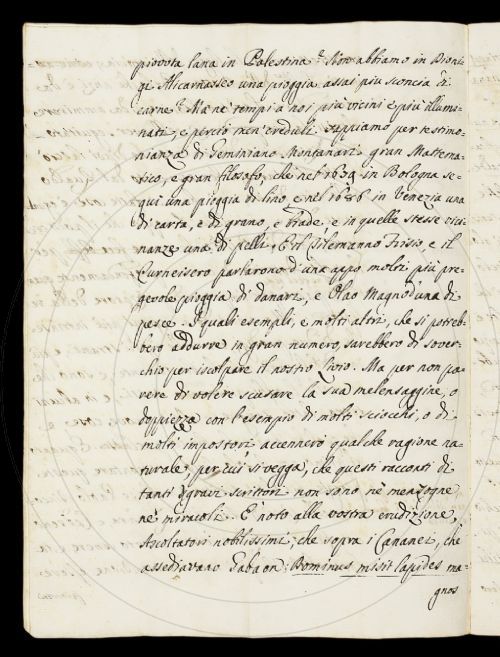 piovuta lana in Palestina? Non abbiamo in Dioni-
gi Alicarnasseo una pioggia assai più sconcia di
carne? Ma ne' tempi a noi più vicini e più illumi-
nati, e perciò men creduli sappiamo per testimo-
nianza di Geminiano Montanari gran Mattema-
tico, e gran filosofo, che nel 1634 in Bologna se-
guì una pioggia di lino, e nel 1686 in Venezia una
di carta, e di grano, e biade, e in quelle stesse vici-
nanze una di pelli. E il Frisio, e il
parlarono d'una appo molti più pre-
gevole pioggia di danari, e Olao Magno d'una di
pesce. I quali esempli, e molti altri, che si potreb-
bero addurre in gran numero, sarebbero di sover-
chio per iscolpare il nostro Livio. Ma per non pa-
rere di volere scusare la sua melensaggine, o
doppiezza con l'esempio di molti sciocchi, o di
molti impostori accennerò qualche ragione na-
turale, per cui si vegga, che questi racconti di
tanti gravi scrittori non sono nè menzogne,
nè miracoli. È noto alla vostra erudizione,
Ascoltatori nobilissimi, che sopra i Cananei, che
assediavano Gabaon: Dominus misit lapides ma-
gnos